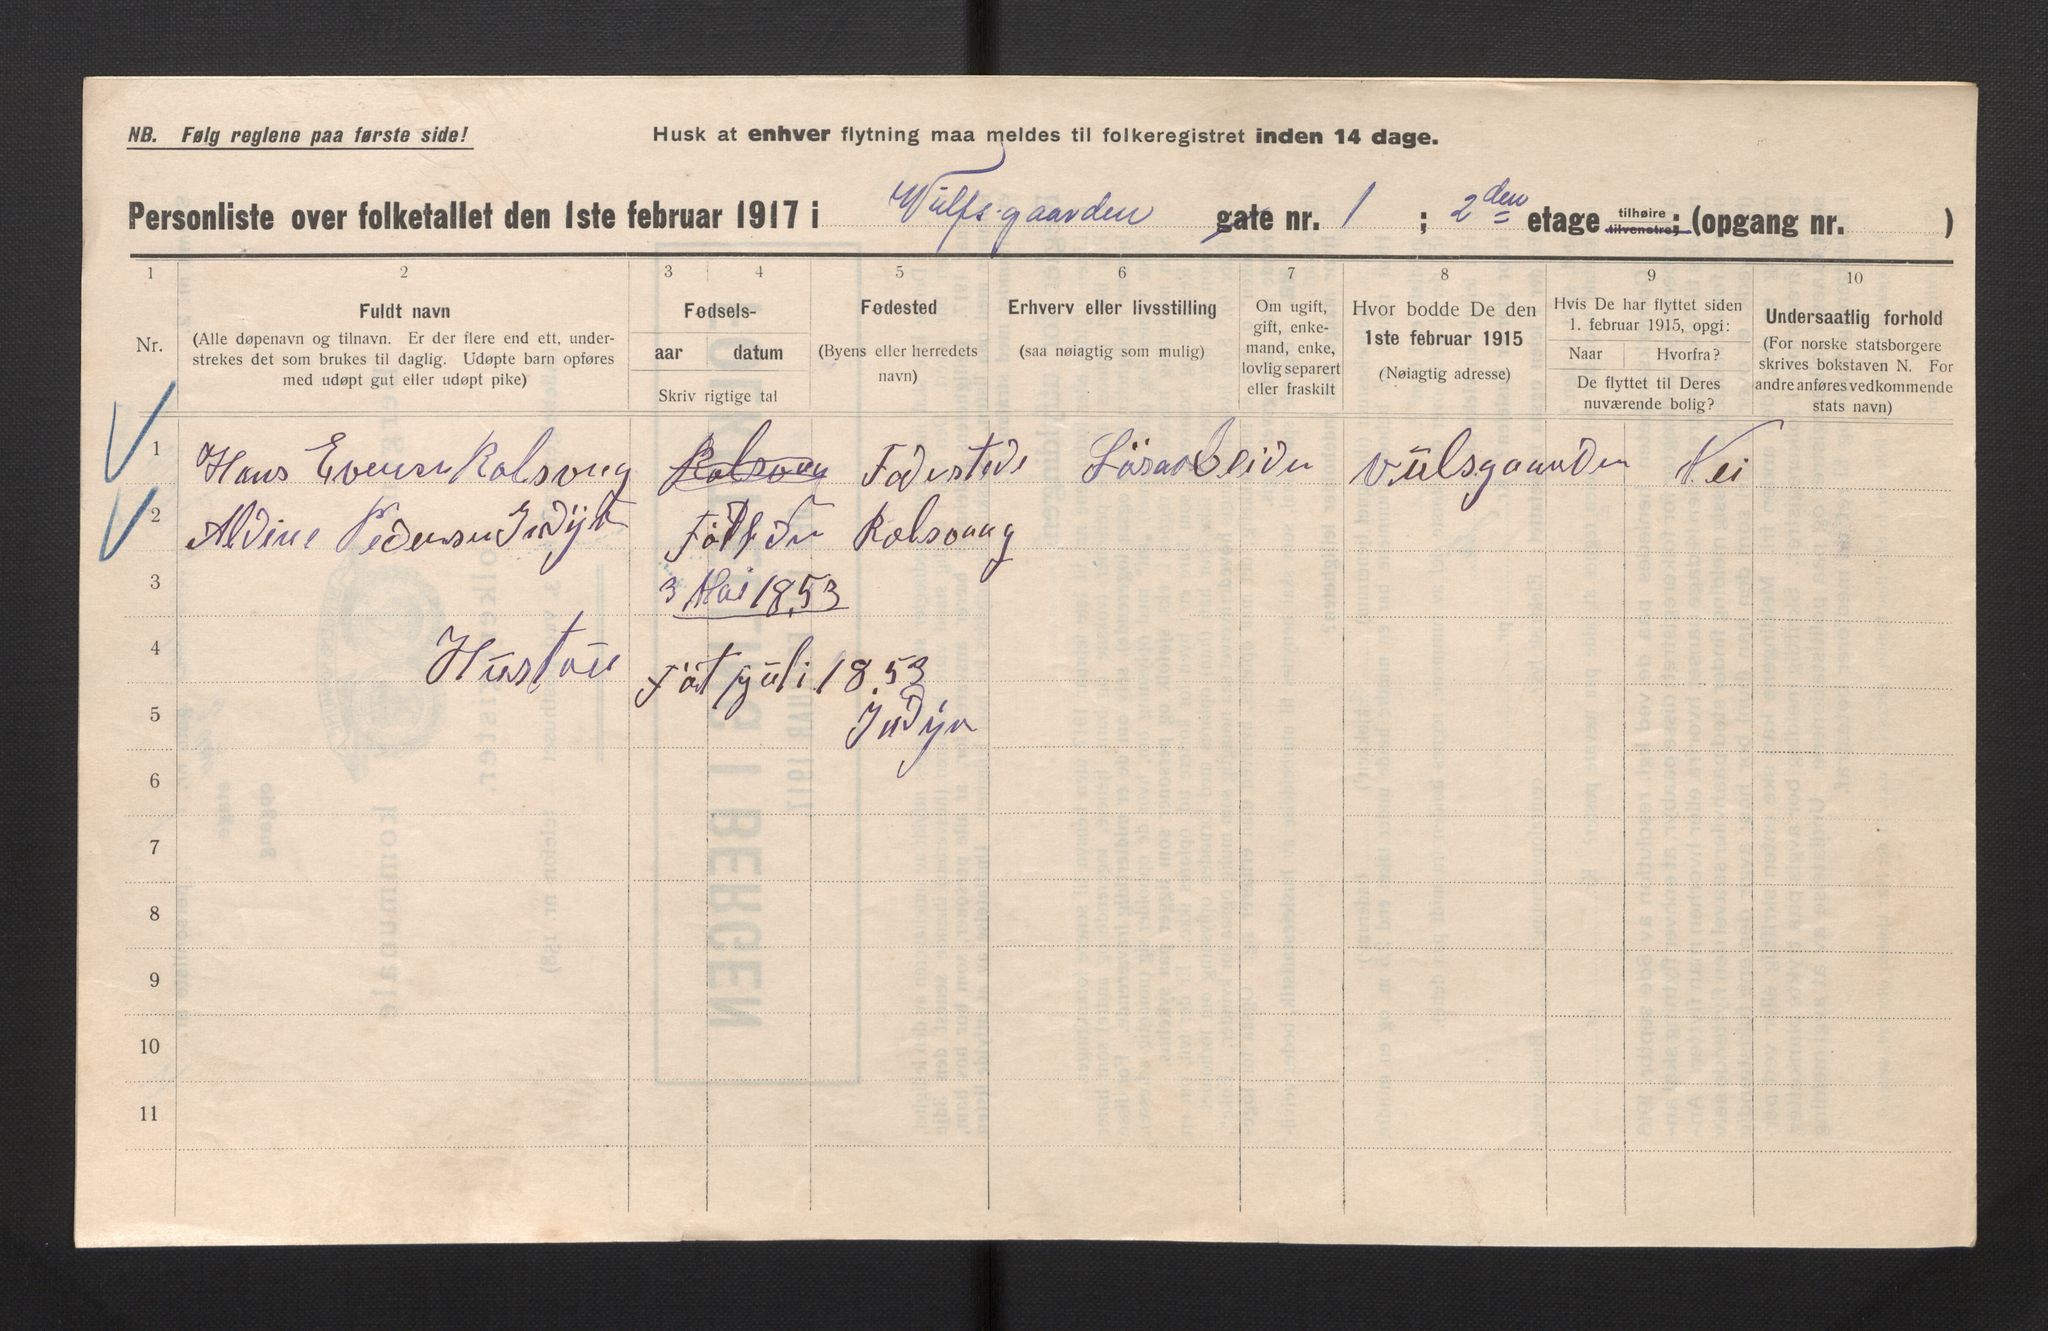 NB. Følg reglene paa første side!
Husk at enhver flytning maa meldes til folkeregistret inden 14 dage.
Personliste over folketallet den 1ste februar 1917 i Wulfsgaarden gate nr. 1 ; 2den etage tilhøire tilvenstre; (opgang nr. )
1 2 3 4 5 6 7 8 9 10
Nr.
Fuldt navn
(Alle døpenavn og tilnavn. Er der flere end ett, under-
strekes det som brukes til daglig. Udøpte barn opføres
med udøpt gut eller udøpt pike)
Fødsels-
aar datum
Skriv rigtige tal
Fødested
(Byens eller herredets
navn)
Erhverv eller livsstilling
(saa nøiagtig som mulig)
Om ugift,
gift, enke-
mand, enke,
lovlig separert
eller fraskilt
Hvor bodde De den
1ste februar 1915
(Nøiagtig adresse)
Hvis De har flyttet siden
1. februar 1915, opgi:
Naar Hvorfra?
De flyttet til Deres
nuværende bolig?
Undersaatlig forhold
(For norske statsborgere
skrives bokstaven N. For
andre anføres vedkommende
stats navn)
1 Hans Evensen Kolsvug Fødestede Lösarbeider Vulsgaarden Nei
2 Aldine Pedersen Indyr Föd
3 3 Mai 1853
4 Hustru Föt juli 1853
5 Indyr
6
7
8
9
10
11